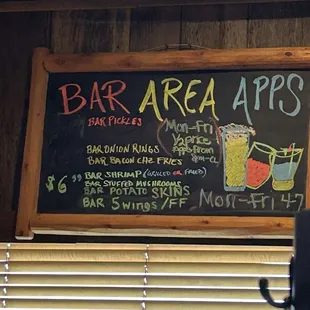 BAR AREA APPS
BAR PICKLES
Mon-Fri
1/2 price
Apps from
BAR ONION RINGS
BAR BACON CHZ FRIES
$6.99
BAR SHRIMP (GRILLED OR FRIED)
BAR STUFFED MUSHROOMS
BAR POTATO SKINS
BAR 5 WINGS/FF
MON-FRI 4-7